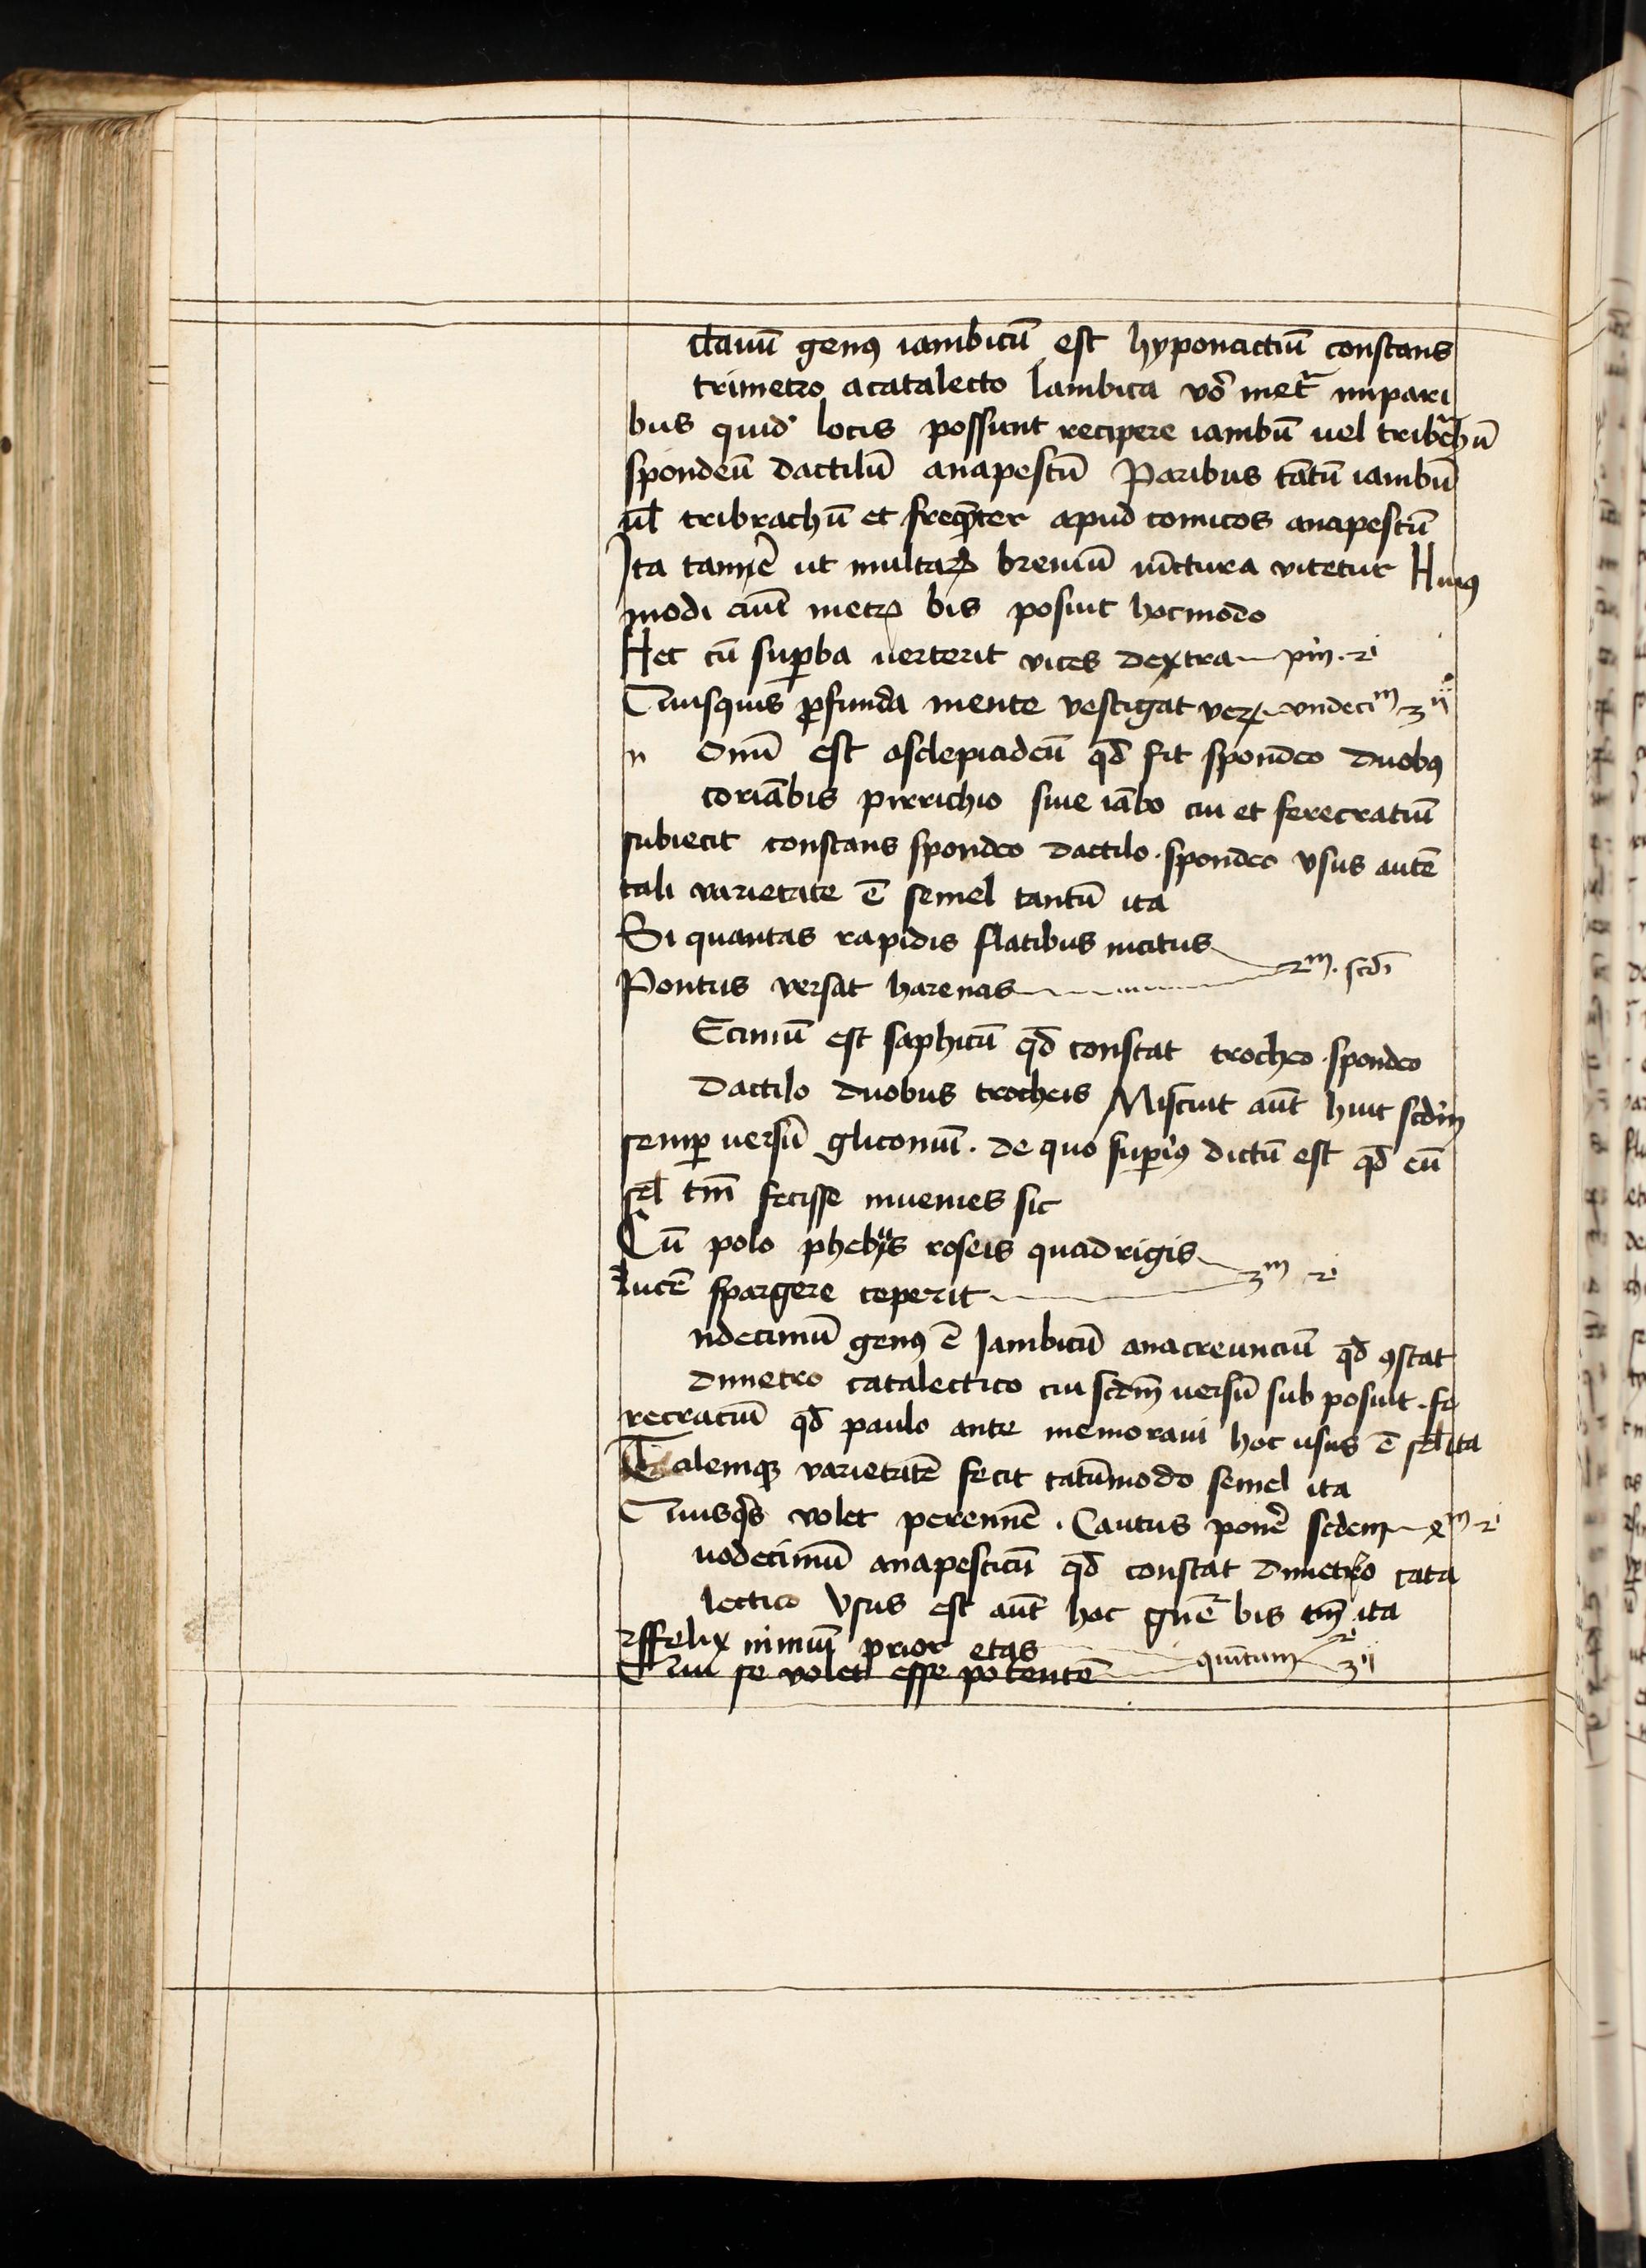 ctauū genꝰ iambicū est hyponactiū constans
trimetro acatalecto Iambica vō metᷓ impari
bus quidē locis possunt recipere iambū uel tribᷓchū
spondeū dactilū anapestū Paribus tātū iambū
ul̄ tribrachū et freqn̄ter apud comicos anapestū
Ita tamē ut multaꝝ breuiū iūctura vitetur Huiꝰ
modi aūt metꝝ bis posuit hocmodo
Hec cū suꝑba uerterit vices dextra pⁱm. 2ⁱ
Quisquis ꝓfunda mente vestigat veꝝ vndecīᵐ 3ⁱⁱ
n Onū est asclepiadeū qd̄ fit spondeo duobꝰ
coriābis pirrichio siue iābo cui et ferecratiū
subiecit constans spondeo dactilo . spondeo vsus autē
tali varietate ē semel tantū ita
Si quantas rapidis flatibus incitus
Pontus versat harenas 2ᵐ. scd̄i
Ecimū est saphicū qd̄ constat trocheo . spondeo
dactilo duobus trocheis Miscuit aūt huic scd̄m
semꝑ uersū gliconiū . de quo suꝑiꝰ dictū est qd̄ eū
sel̄ tm̄ fecisse inuenies sic
Cū polo phebus roseis quadrigis
lucē spargere ceperit 3ᵐ 2ⁱ
ndecimū genꝰ ē Iambicū anacreunciū qd̄ ꝯstat
dimetro catalectico cui scd̄m uersū sub posuit . fe
recraciū qd̄ paulo ante memoraui hoc usus ē sel̄ ita
Talemqꝫ varietatē fecit tātūmodo semel ita
Quisqⁱs volet perennē . Cautus ponē sedem 4ᵐ 2ⁱ
uodecimū anapesticū qd̄ constat dimetro cata
lectico Vsus est aūt hoc gn̄e bis tm̄ ita
ffelix nimiū prior etas quintum 2ⁱ
Qui se volet esse potentē 3ⁱⁱ